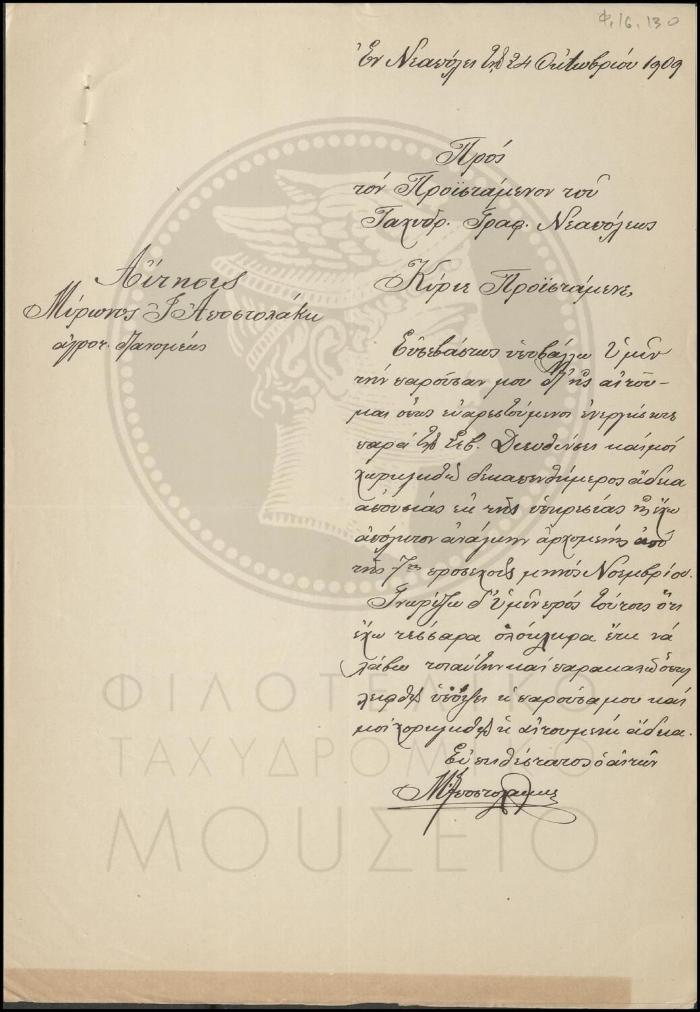 Φ. 16. 130
Ἐν Νεαπόλει τῇ 24 Ὀκτωβρίου 1909
Πρός
τόν Προϊστάμενον τοῦ
Ταχυδρ. Γραφ. Νεαπόλεως
Αἴτησις
Μύρωνος Γ Ἀποστολάκη
ἀγροτ. διανομέως
Κύριε Προϊστάμενε,
Εὐσεβάστως ὑποβάλλω Ὑμῖν
τήν παροῦσάν μου δι' ἧς αἰτοῦ-
μαι ὅπως εὐαρεστούμενοι ἐνεργήσητε
παρά τῇ Σεβ. Διευθύνσει καί μοί
χορηγηθῇ δεκαπενθήμερος ἄδεια
ἀπουσίας ἐκ τῆς ὑπηρεσίας ἧς ἔχω
ἀπόλυτον ἀνάγκην ἀρχομένης ἀπό
τῆς 7ης προσεχοῦς μηνός Νοεμβρίου.
Γνωρίζω δ' Ὑμῖν πρός τούτοις ὅτι
ἔχω τέσσαρα ὁλόκληρα ἔτη νά
λάβω τοιαύτην καί παρακαλῶ ὅπως
ληφθῇ ὑπ' ὄψει ἡ παροῦσα μου καί
μοί χορηγηθῇ ἡ αἰτουμένη ἄδεια.
Εὐπειθέστατος ὁ αἰτῶν
Μ. Ἀποστολάκης
ΦΙΛΟΤΕΛΙΚΟ
ΤΑΧΥΔΡΟΜΙΚΟ
ΜΟΥΣΕΙΟ